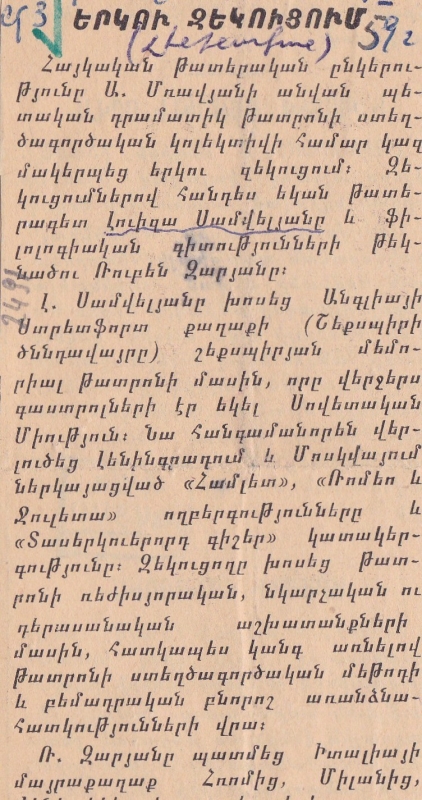 ԵՐԿՈՒ ԶԵԿՈՒՑՈՒՄ
59
Հայկական թատերական ընկերու-
թյունը Ա. Մռավյանի անվան պե-
տական դրամատիկ թատրոնի ստեղ-
ծագործական կոլեկտիվի համար կազ
մակերպեց երկու զեկուցում։ Զե-
կուցումներով հանդես եկան թատե-
րագետ Լուիզա Սամվելյանը և ֆի-
լոլոգիական գիտությունների թեկ-
նածու Ռուբեն Զարյանը։
Լ. Սամվելյանը խոսեց Անգլիայի
Ստրետֆորտ քաղաքի (Շեքսպիրի
ծննդավայրը) շեքսպիրյան մեմո-
րիալ թատրոնի մասին, որը վերջերս
գաստրոլների էր եկել Սովետական
Միություն։ Նա հանգամանորեն վեր-
լուծեց Լենինգրադում և Մոսկվայում
ներկայացված «Համլետ», «Ռոմեո և
Ջուլետա» ողբերգությունները և
«Տասերկուերորդ գիշեր» կատակեր-
գությունը։ Զեկուցողը խոսեց թատ-
րոնի ռեժիսյորական, նկարչական ու
դերասանական աշխատանքների
մասին, հատկապես կանգ առնելով
թատրոնի ստեղծագործական մեթոդի
և բեմադրական բնորոշ առանձնա-
հատկությունների վրա։
Ռ. Զարյանը պատմեց Իտալիայի
մայրաքաղաք Հռոմից, Միլանից,